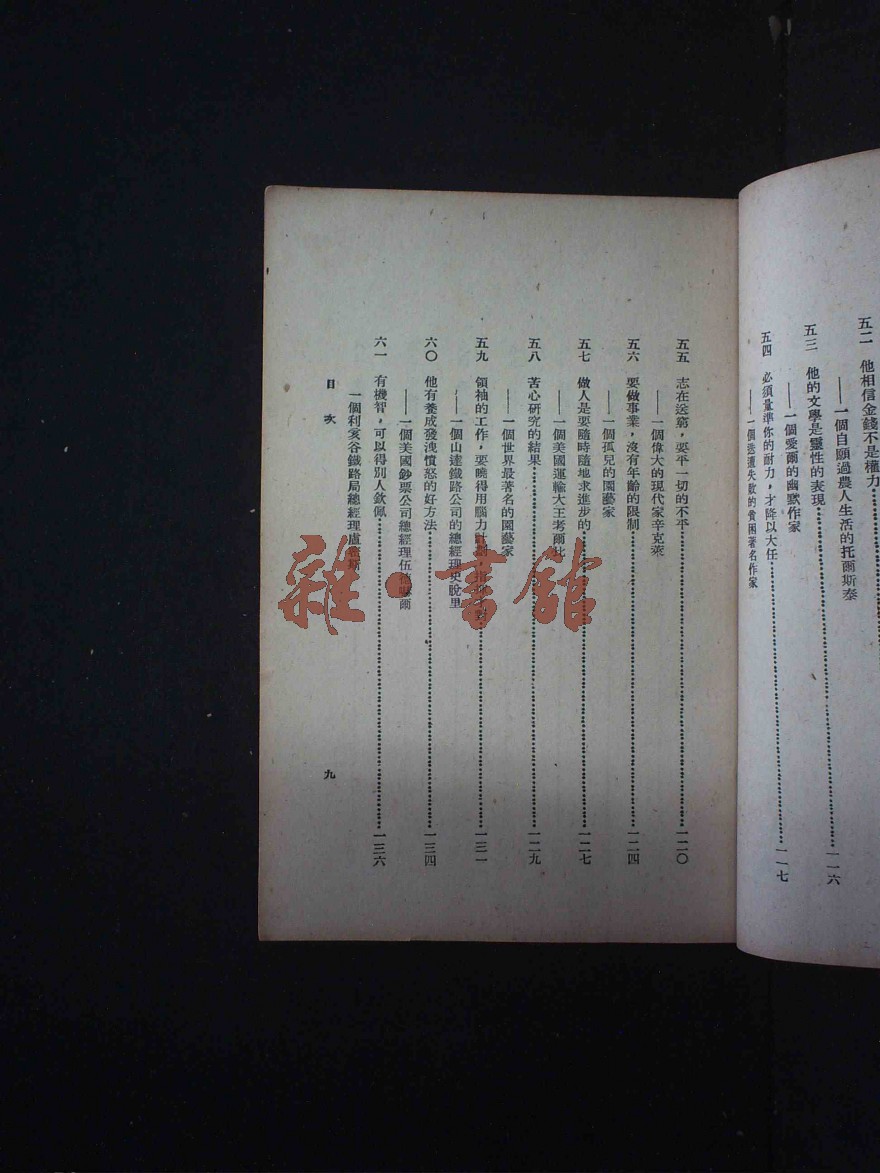 五二　他相信金錢不是權力
——一個自願過農人生活的托爾斯泰
五三　他的文學是靈性的表現…………一一六
——一個愛爾的幽默作家
五四　必須量準你的耐力，才降以大任…………一一七
——一個迭遭失敗的貧困著名作家
五五　志在送窮，要平一切的不平…………一二〇
——一個偉大的現代家辛克萊
五六　要做事業，沒有年齡的限制…………一二四
——一個孤兒的園藝家
五七　做人是要隨時隨地求進步的…………一二七
——一個美國運輸大王考爾比
五八　苦心研究的結果…………一二九
——一個世界最著名的園藝家
五九　領袖的工作，要曉得用腦力計劃…………一三一
——一個山達鐵路公司的總經理史脫里
六〇　他有養成發洩憤怒的好方法…………一三四
——一個美國鈔票公司總經理伍爾
六一　有機智，可以得別人欽佩…………一三六
一個利亥谷鐵路局總經理盧密斯
目次
九
雜·書館